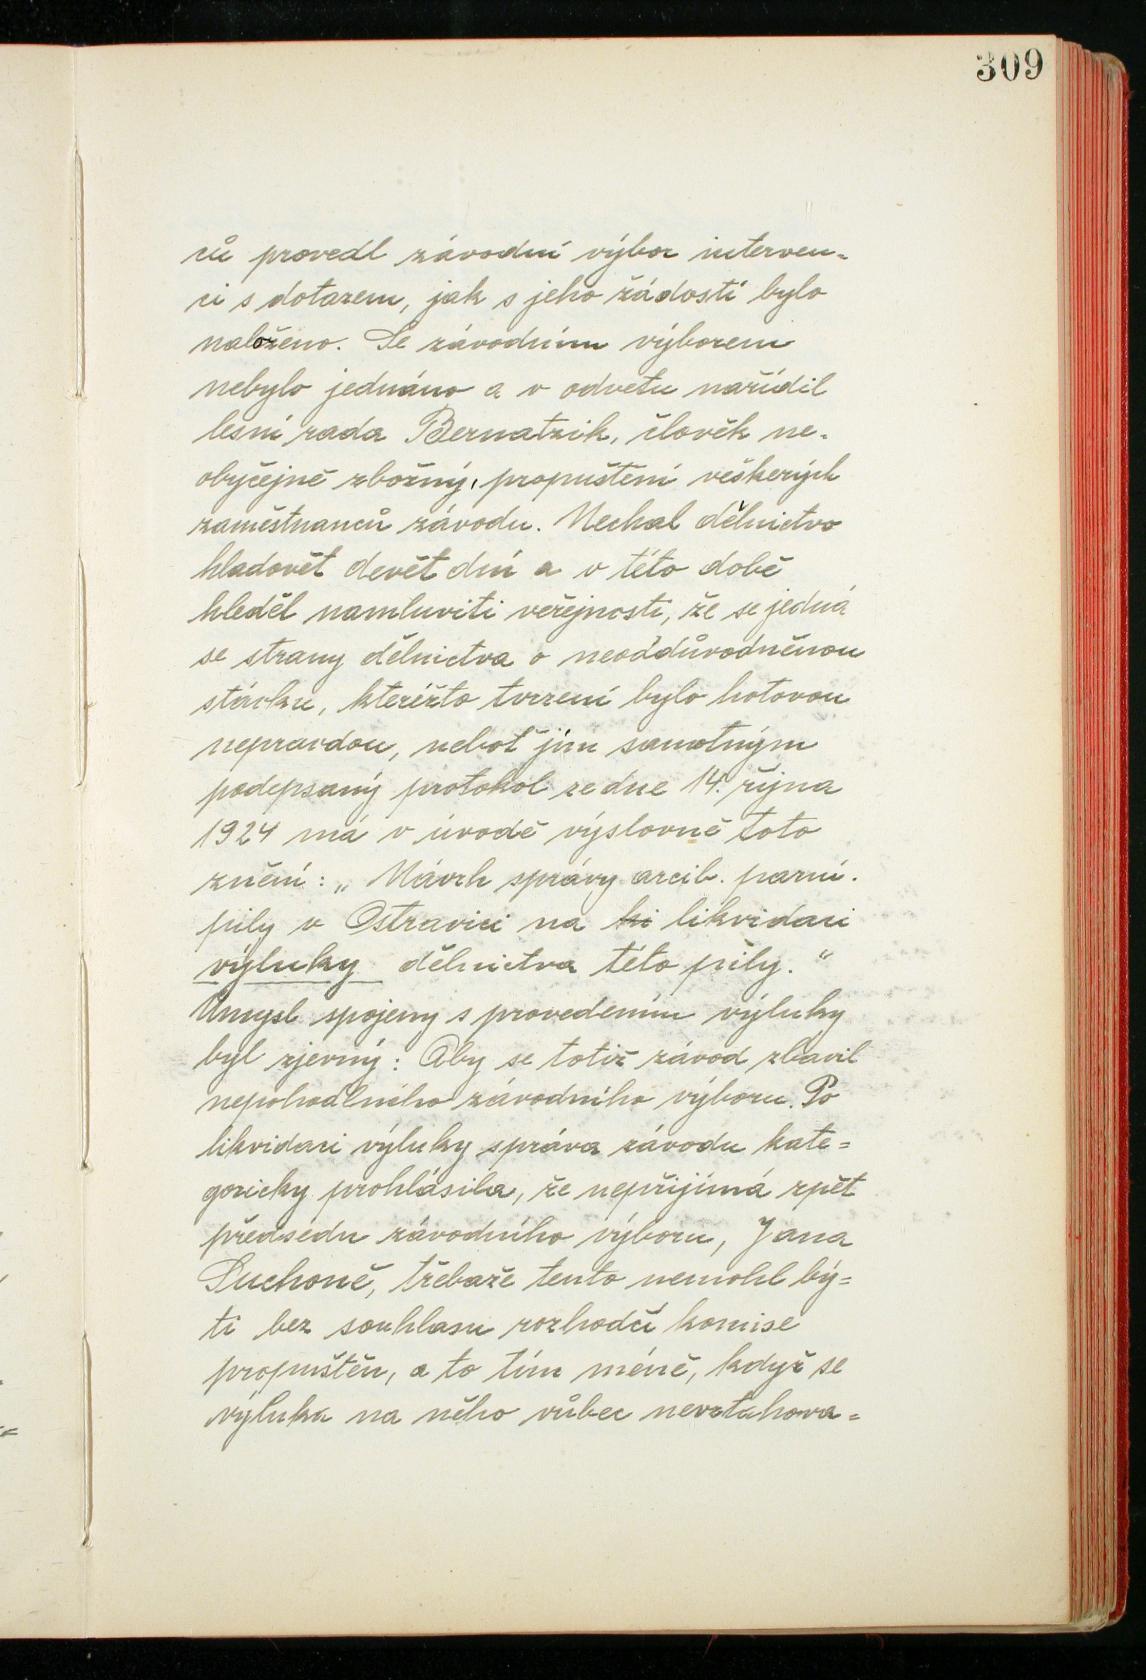 309
ců provedl závodní výbor interven-
ci s dotazem, jak s jeho žádostí bylo
naloženo. Se závodním výborem
nebylo jednáno a v odvetu nařídil
lesní rada Bernatzik, člověk ne-
obyčejně zbožný, propuštění veškerých
zaměstnanců závodu. Nechal dělnictvo
hladovět devět dní a v této době
hleděl namluviti veřejnosti, že se jedná
se strany dělnictva o neodůvodněnou
stávku, kteréžto tvrzení bylo hotovou
nepravdou, neboť jím samotným
podepsaný protokol ze dne 14. října
1924 má v úvodě výslovně toto
znění: „Návrh správy arcib. parní.
pily v Ostravici na ki likvidaci
výluky dělnictva této pily."
Úmysl spojený s provedením výluky
byl zjevný: Aby se totiž závod zbavil
nepohodlného závodního výboru. Po
likvidaci výluky správa závodu kate=
goricky prohlásila, že nepřijímá zpět
předsedu závodního výboru, Jana
Suchoně, třebaže tento nemohl bý=
ti bez souhlasu rozhodčí komise
propuštěn, a to tím méně, když se
výluka na něho vůbec nevztahova=